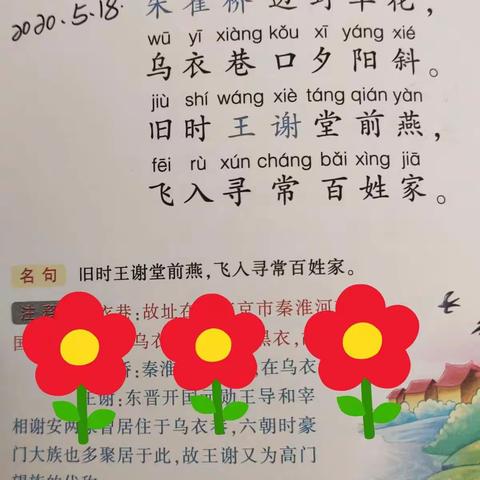 2020.5.18.
朱雀桥边野草花，
wū yī xiàng kǒu xī yáng xié
乌衣巷口夕阳斜。
jiù shí wáng xiè táng qián yàn
旧时王谢堂前燕，
fēi rù xún cháng bǎi xìng jiā
飞入寻常百姓家。
名句 旧时王谢堂前燕，飞入寻常百姓家。
注 衣巷：故址在 京市秦淮河
国 乌衣 黑衣，
秦淮 在乌衣
王谢：东晋开国元勋王导和宰
相谢安两 曾居住于乌衣巷，六朝时豪
门大族也多聚居于此，故王谢又为高门
望族的代称